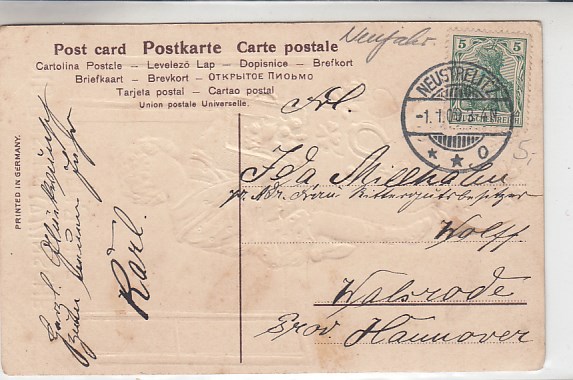 Neujahr.
Post card Postkarte Carte postale
Cartolina Postale — Levelező Lap — Dopisnice — Brefkort
Briefkaart — Brevkort — ОТКРЫТОЕ ПИСЬМО
Tarjeta postal — Cartao postal
Union postale Universelle.
5 5
NEUSTRELITZ
-1.1.0
PRINTED IN GERMANY.
Herzl. Glückwunsch
zum neuen Jahr
Karl.
Frl.
Ida Millhahn
pr. Adr. Frau Rittergutsbesitzer
Wolff
Walsrode
Prov. Hannover
5,